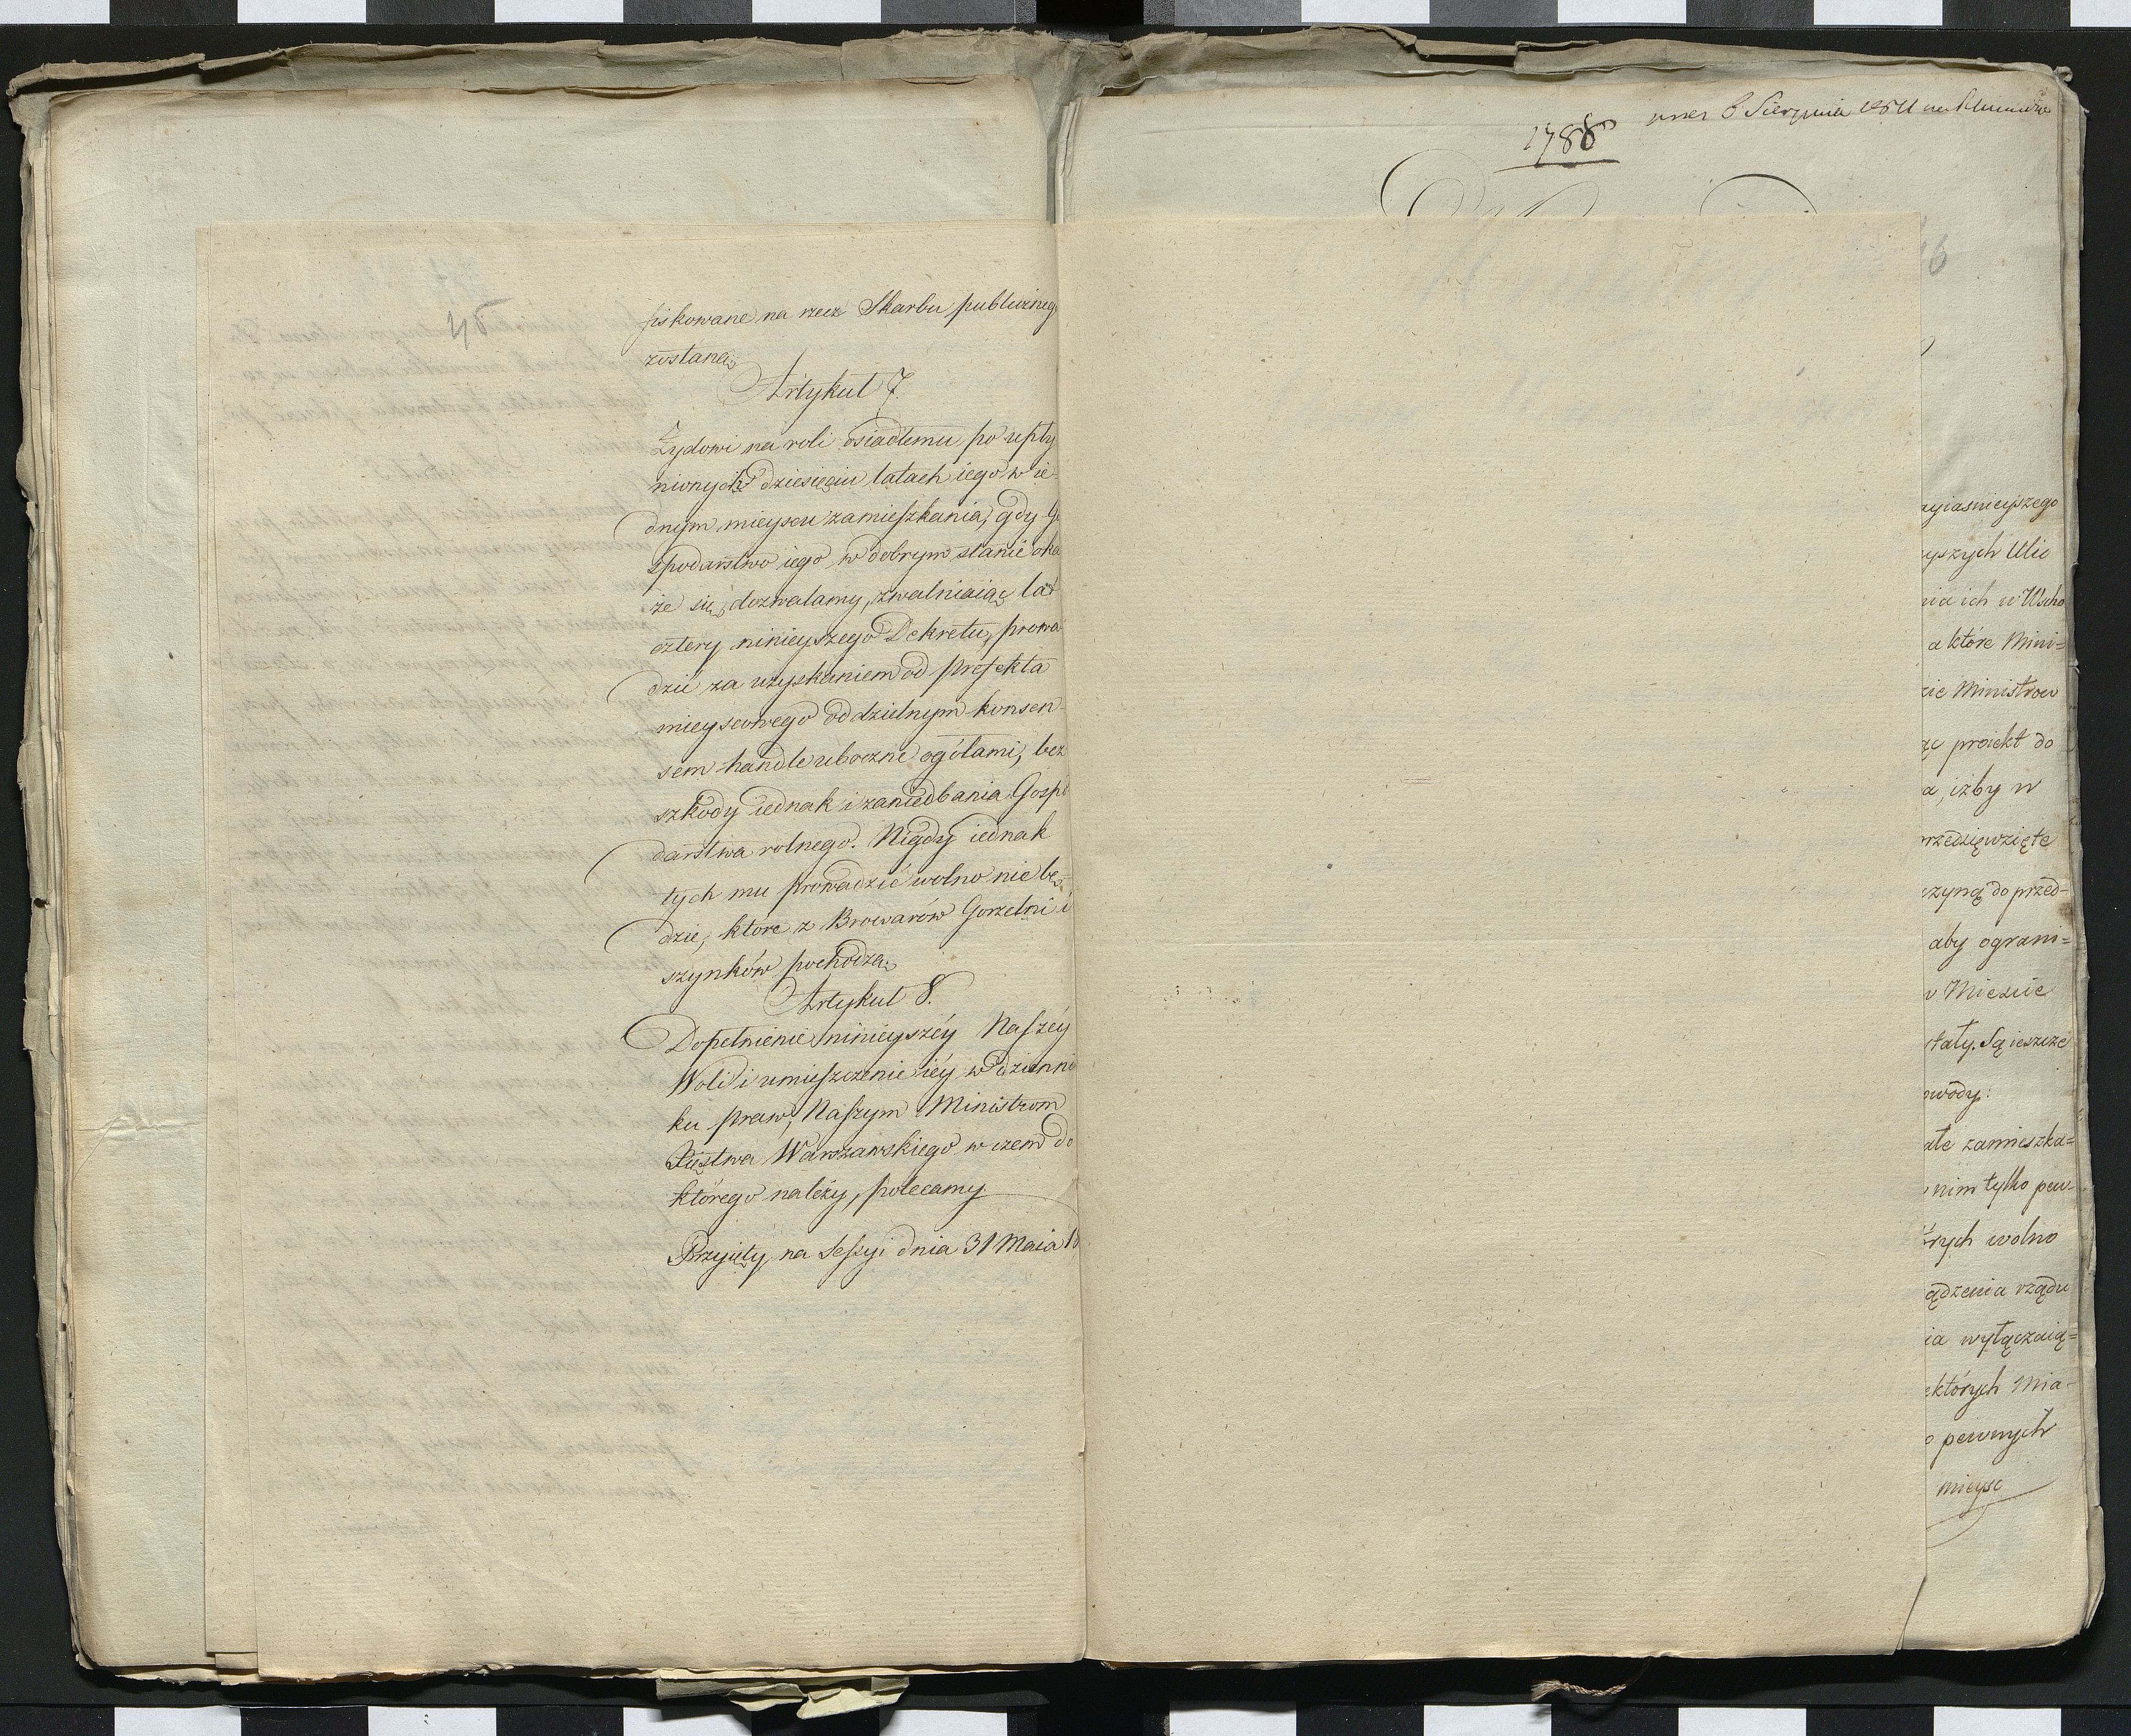 45
fiskowane na rzecz Skarbu publicznego
zostaną
Artykuł 7.
Żydowi na roli osiadłemu po upły
nionych dziesięciu latach iego w ie-
dnym mieyscu zamieszkania, gdy Go
spodarstwo iego w dobrym stanie oka
że się, dozwalamy, zwalniaiąc lat
cztery ninieyszego Dekretu, prowa
dzić za uzyskaniem od Prefekta
mieyscowego oddzielnym konsen-
sem handle uboczne ogółami, bez
szkody iednak i zaniedbania Gospo
darstwa rolnego. Nigdy iednak
tych mu prowadzić wolno nie bę-
dzie, które z Browarów Gorzelni i
szynków pochodzą
Artykuł 8.
Dopełnienie ninieyszéy Naszéy
Woli i umieszczenie iéy w dzienni
ku praw, Naszym Ministrom
Xięstwa Warszawskiego w czem do
którego należy, polecamy.
Przyięty na Sessyi dnia 31 Maia 18
1788
6 Sierpnia
yiasnieyszego
yszych Ulic
nia ich w Uscho
a które Mini=
zie Ministrow
proiekt do
a, iżby w
rzedzięwzięte
czyną do przed-
aby ograni=
w Mieście
stały. Są ieszcze
owody:
ałe zamieszka=
nim tylko pew-
rych wolno
ądzenia rządu
ia wyłączaią=
których Mia-
o pewnych
mieysc